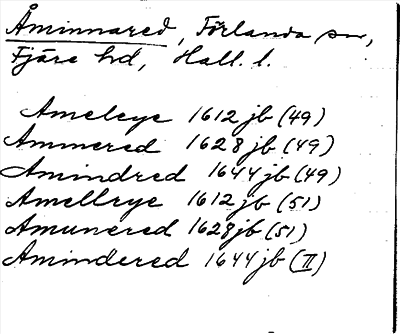 Åminnared, Förlanda sn,
Fjäre hd, Hall. l.
Ameleye 1612 jb (49)
Ammered 1628 jb (49)
Amindred 1644 jb (49)
Amellrye 1612 jb (51)
Amunered 1628 jb (51)
Amindered 1644 jb (II)